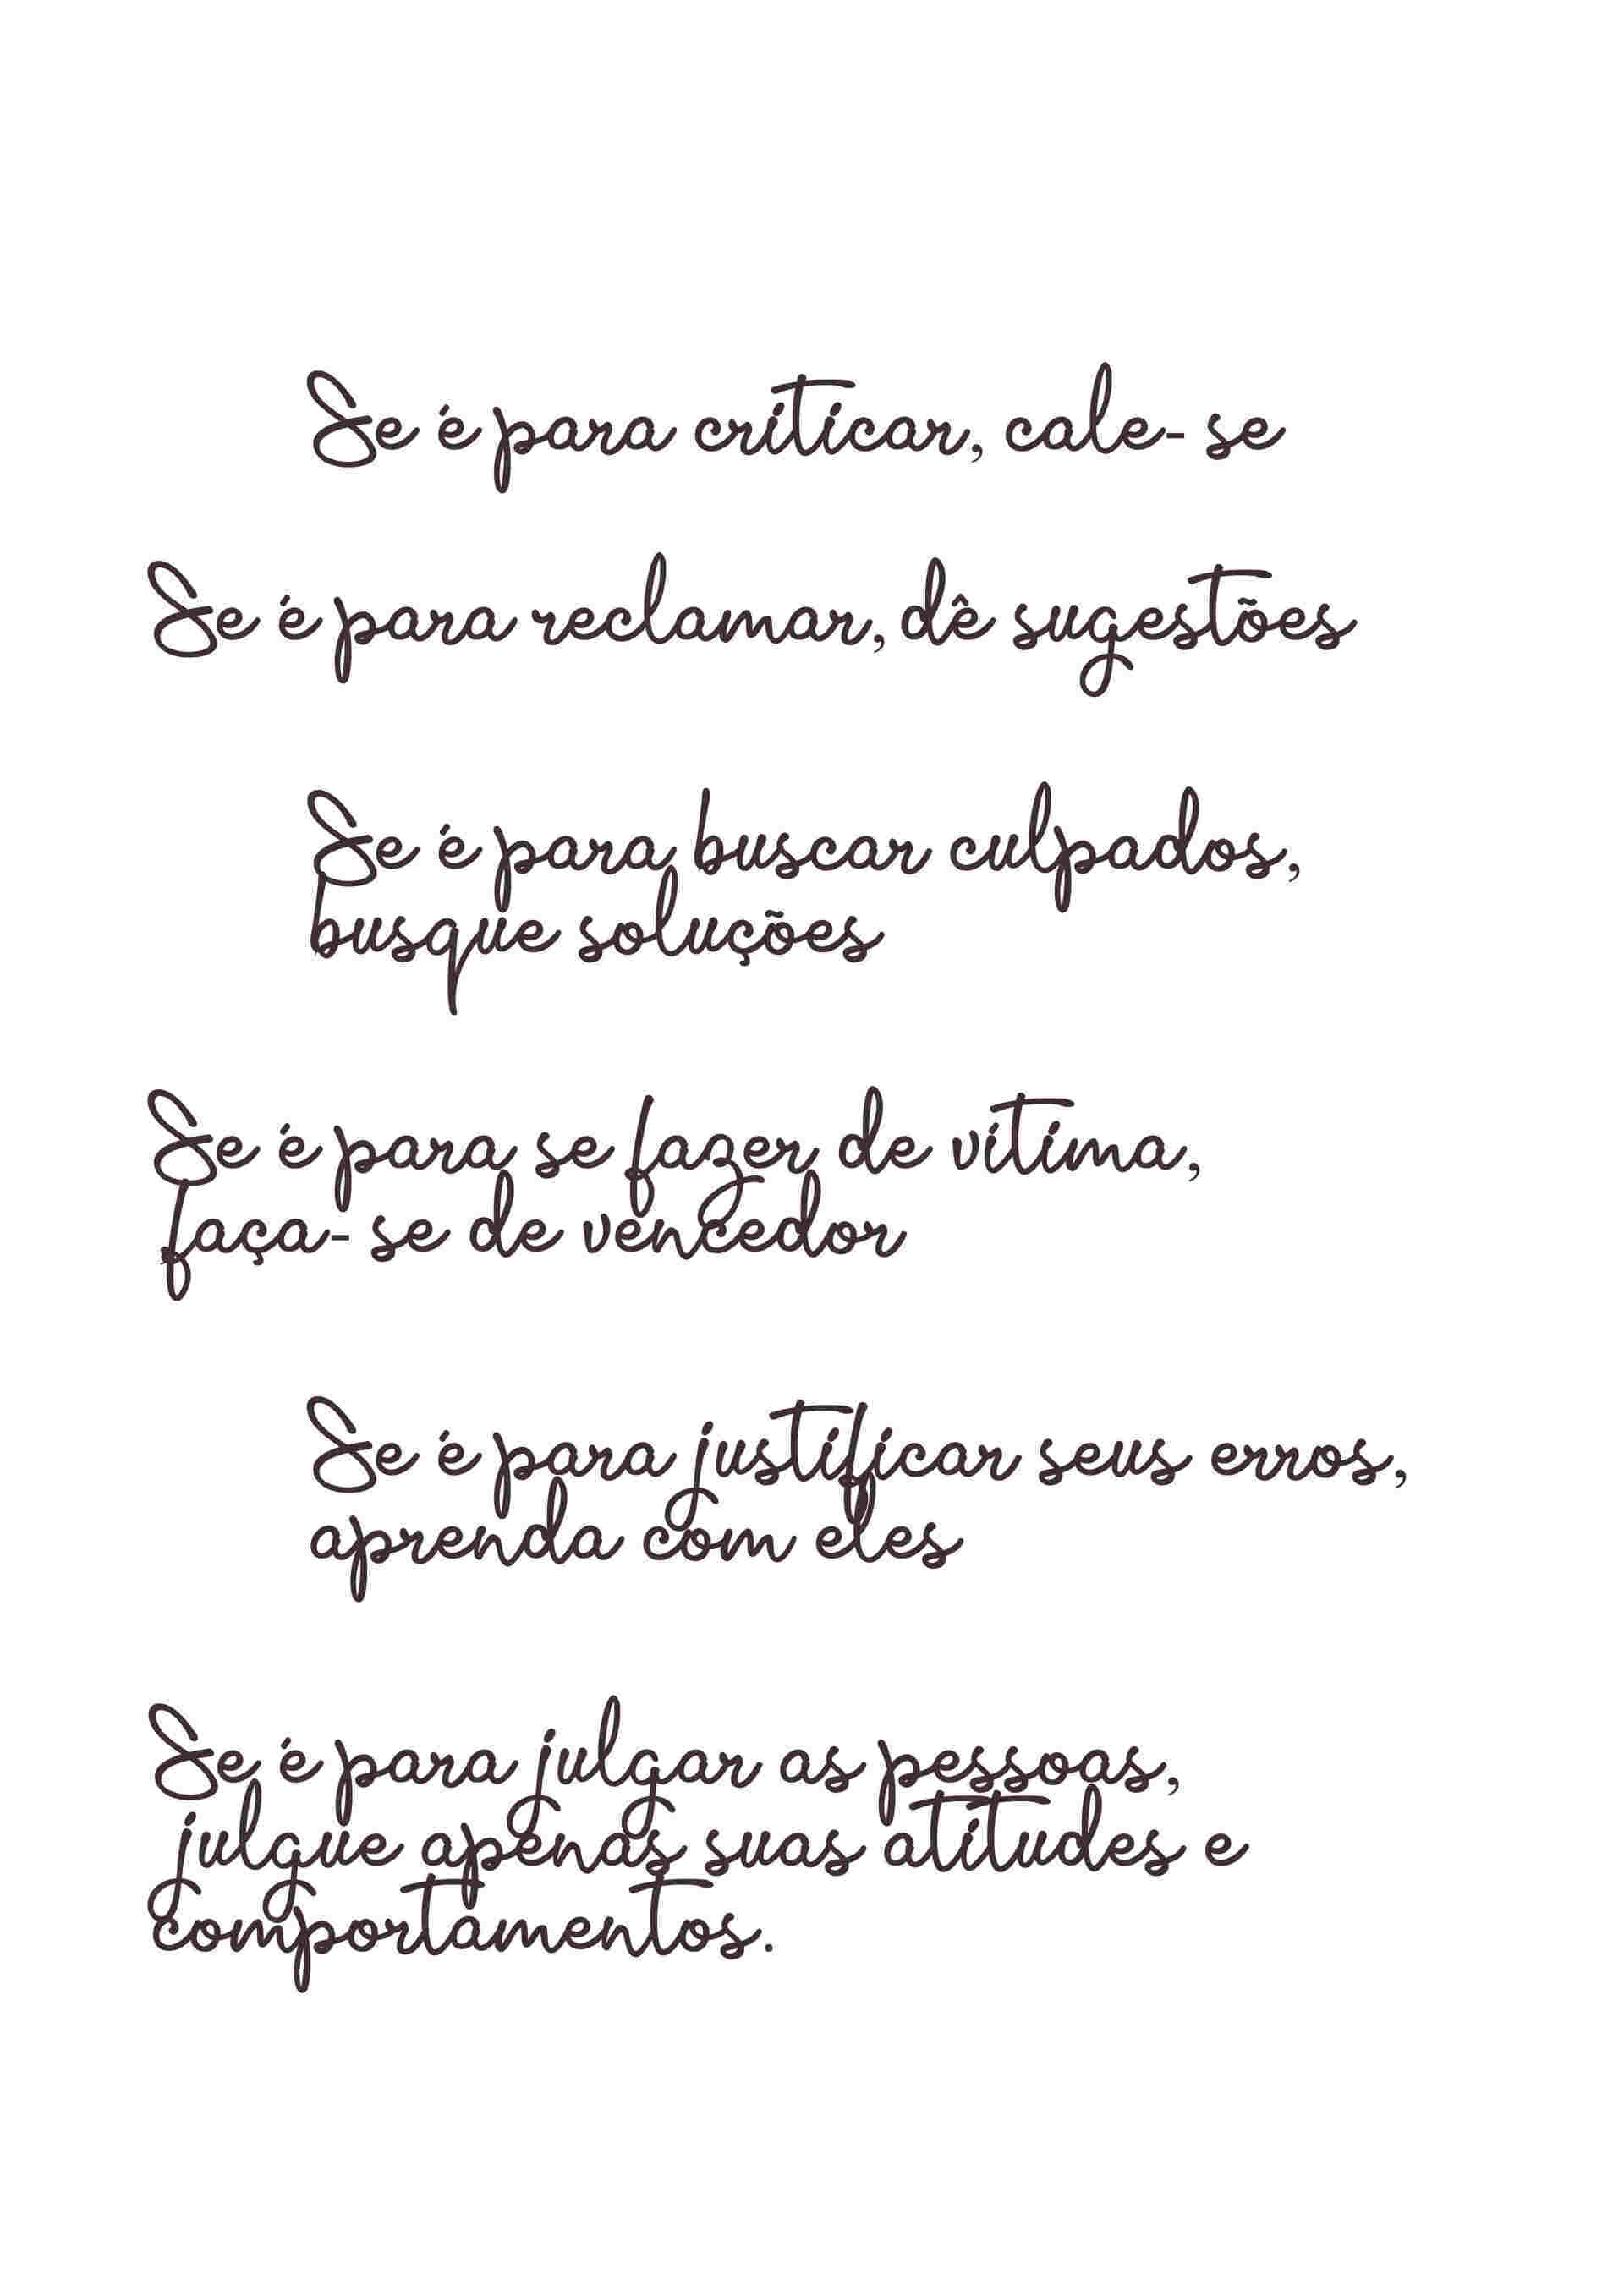 Se é para criticar, cale- se
Se é para reclamar, dê sugestões
Se é para buscar culpados,
busque soluções
Se é para se fazer de vítima,
faça- se de vencedor
Se é para justificar seus erros,
aprenda com eles
Se é para julgar as pessoas,
julgue apenas suas atitudes e
comportamentos.